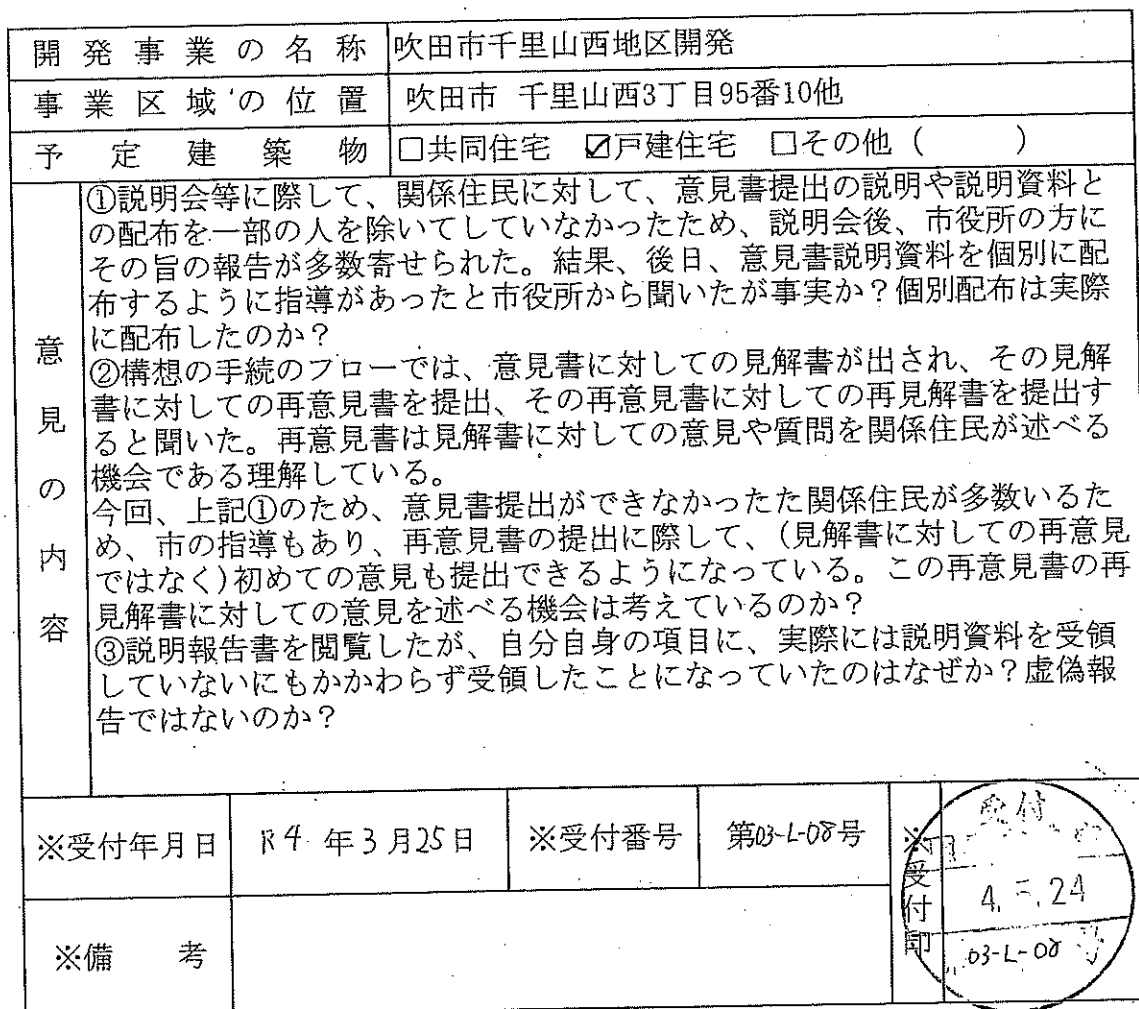 開発事業の名称 吹田市千里山西地区開発
事業区域の位置 吹田市 千里山西3丁目95番10他
予定建築物 □共同住宅 ☑戸建住宅 □その他（ ）
意見の内容
①説明会等に際して、関係住民に対して、意見書提出の説明や説明資料と
の配布を一部の人を除いてしていなかったため、説明会後、市役所の方に
その旨の報告が多数寄せられた。結果、後日、意見書説明資料を個別に配
布するように指導があったと市役所から聞いたが事実か？個別配布は実際
に配布したのか？
②構想の手続のフローでは、意見書に対しての見解書が出され、その見解
書に対しての再意見書を提出、その再意見書に対しての再見解書を提出す
ると聞いた。再意見書は見解書に対しての意見や質問を関係住民が述べる
機会である理解している。
今回、上記①のため、意見書提出ができなかったた関係住民が多数いるた
め、市の指導もあり、再意見書の提出に際して、(見解書に対しての再意見
ではなく)初めての意見も提出できるようになっている。この再意見書の再
見解書に対しての意見を述べる機会は考えているのか？
③説明報告書を閲覧したが、自分自身の項目に、実際には説明資料を受領
していないにもかかわらず受領したことになっていたのはなぜか？虚偽報
告ではないのか？
※受付年月日 R4 年3月25日 ※受付番号 第03-L-08号 ※受付印
受付
24
03-L-08
※備考